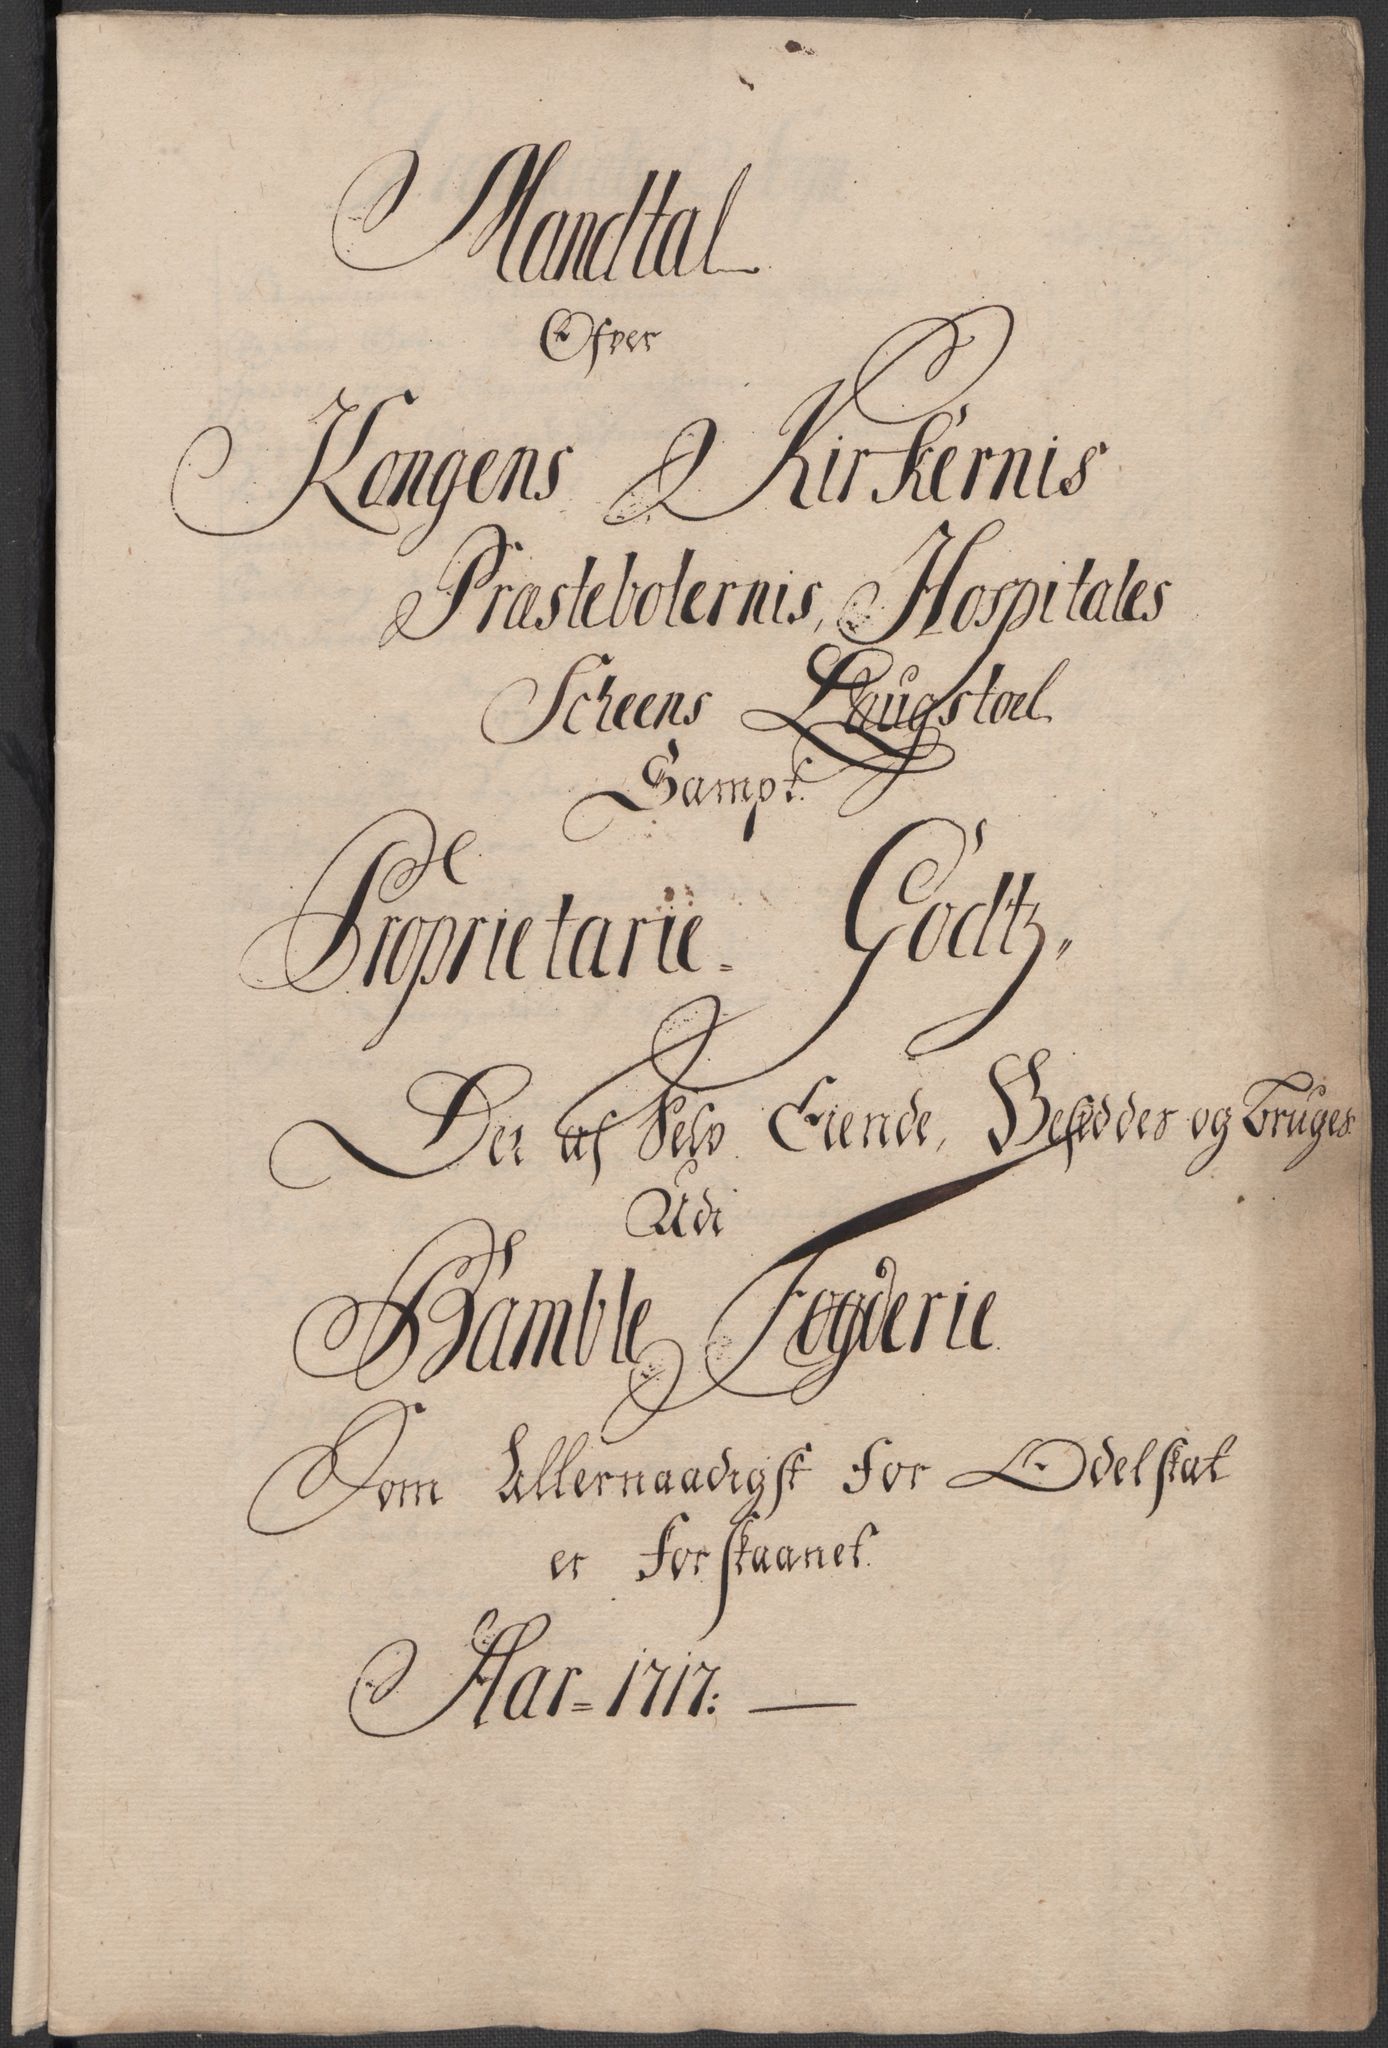 Mandtal
Ofver
Kongens Kirkernis
Præstebolernis, Hospitales
Scheens Laugstoel
Sampt.
Proprietarie= Godtz,
Der af Selv Eiende, Besidder og bruges
Udi
Bamble Fogderie
Som Allernaadigst for Odelskat
er forskaanet.
Aar= 1717: —